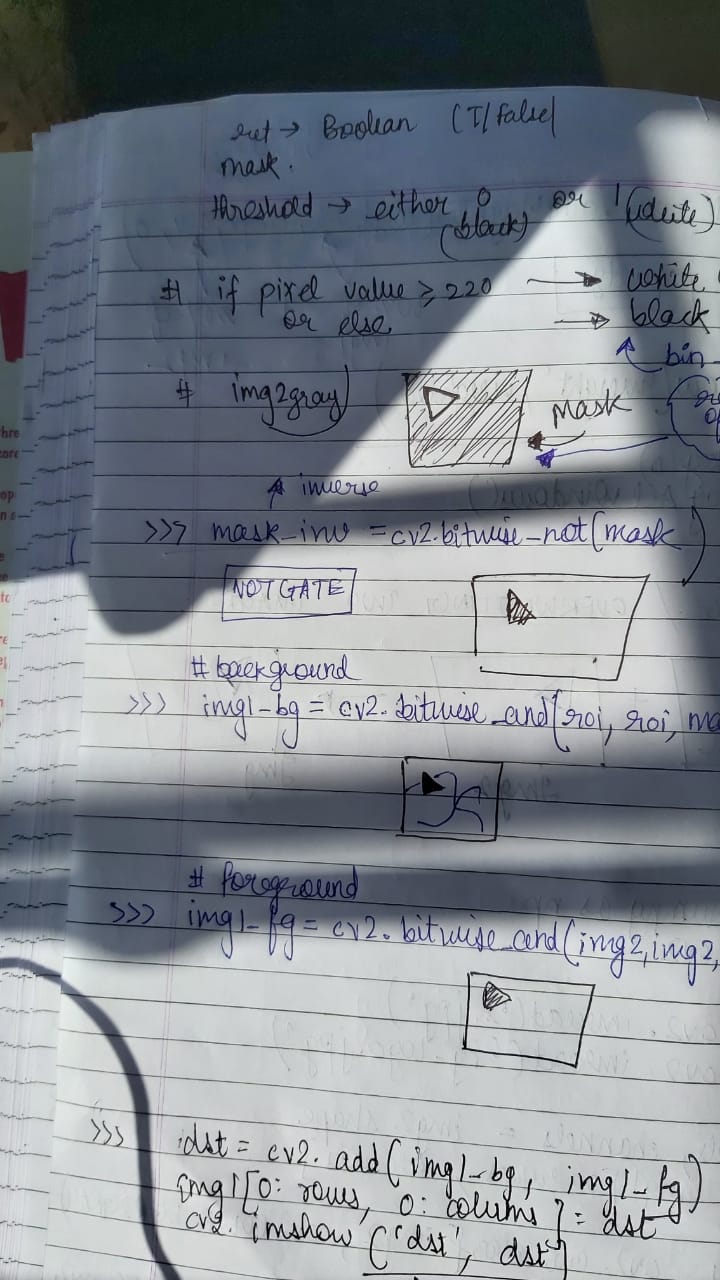 ret → Boolean (T/False)
mask.
threshold → either 0 or 1
(black) (white)
# if pixel value ≥ 220 → white
or else → black
bin
# img2gray
Mask
inverse
>>> mask_inv = cv2.bitwise_not(mask)
NOT GATE
# background
>>> img1_bg = cv2.bitwise_and(roi, roi, ma
# foreground
>>> img1_fg = cv2.bitwise_and(img2, img2,
>>> dst = cv2.add(img1_bg, img1_fg)
img1[0: rows, 0: colums] = dst
cv2.imshow('dst', dst)